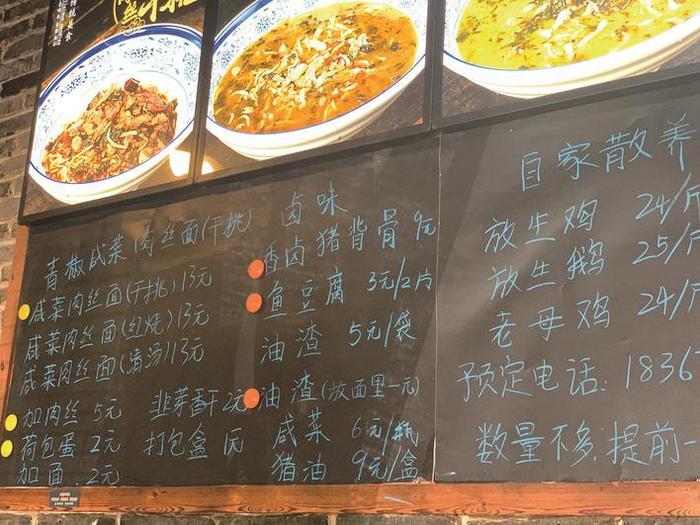 青椒咸菜肉丝面(干挑)
咸菜肉丝面(干挑)13元
咸菜肉丝面(红烧)13元
咸菜肉丝面(清汤)13元
加肉丝 5元 韭芽香干2元
荷包蛋 2元 打包盒 1元
加面 2元
卤味
香卤猪背骨 9元
鱼豆腐 3元/2片
油渣 5元/袋
油渣(放面里一元)
咸菜 6元/瓶
猪油 9元/盒
自家散养
放生鸡 24/斤
放生鹅 25/斤
老母鸡 24/斤
预定电话: 1836
数量不多,提前一